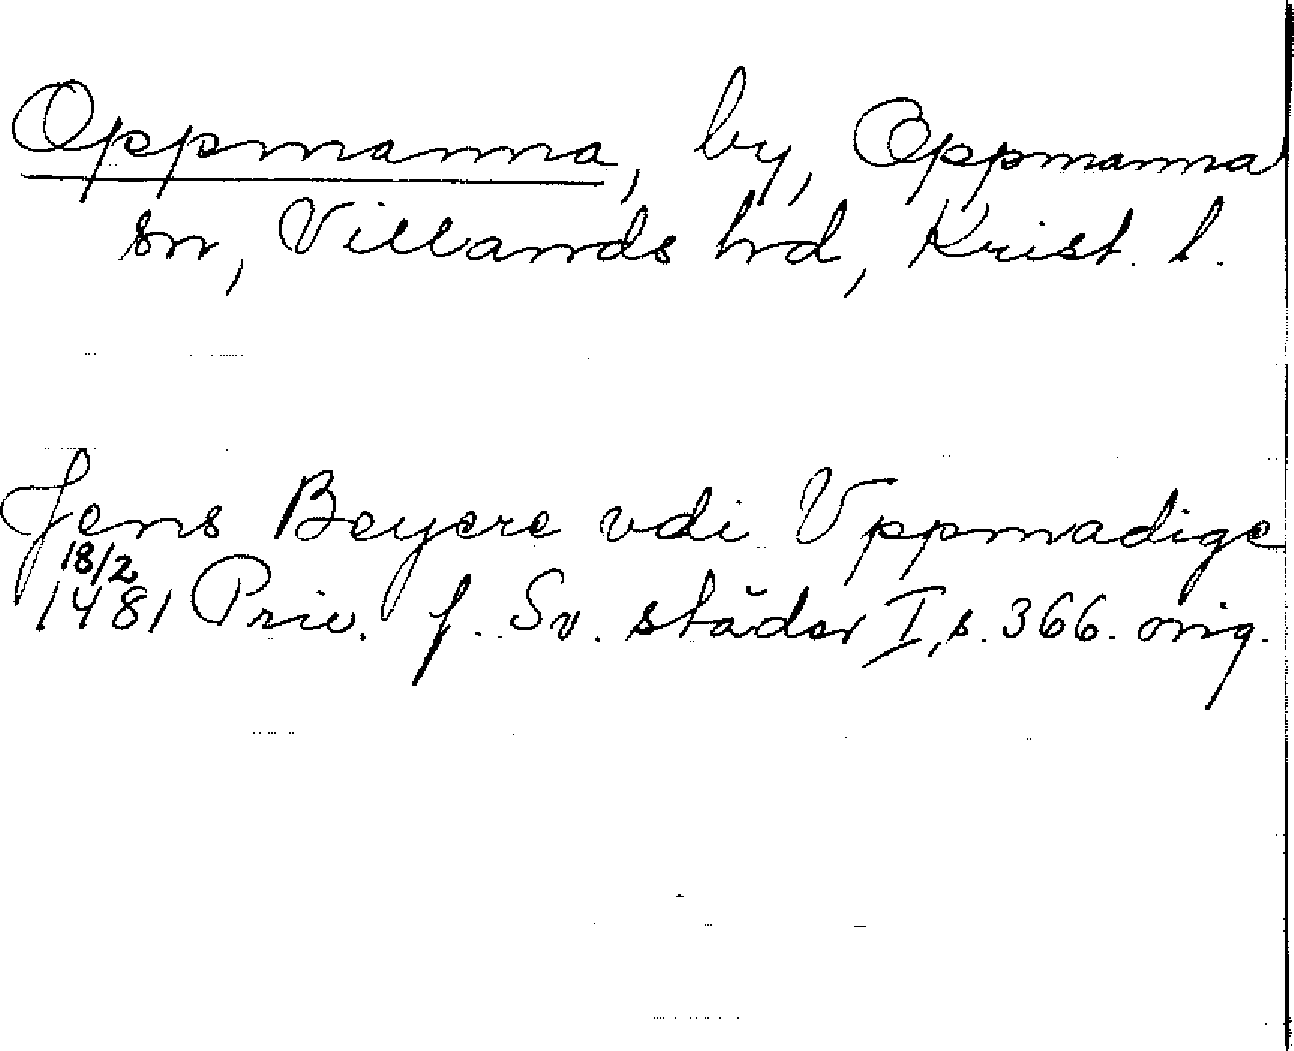 Oppmanna, by, Oppmanna
sn, Villands hd, Krist. l.
Jens Beyere vdi Vppmadige
18/2
1481 Priv. f. Sv. städer I, s. 366. orig.